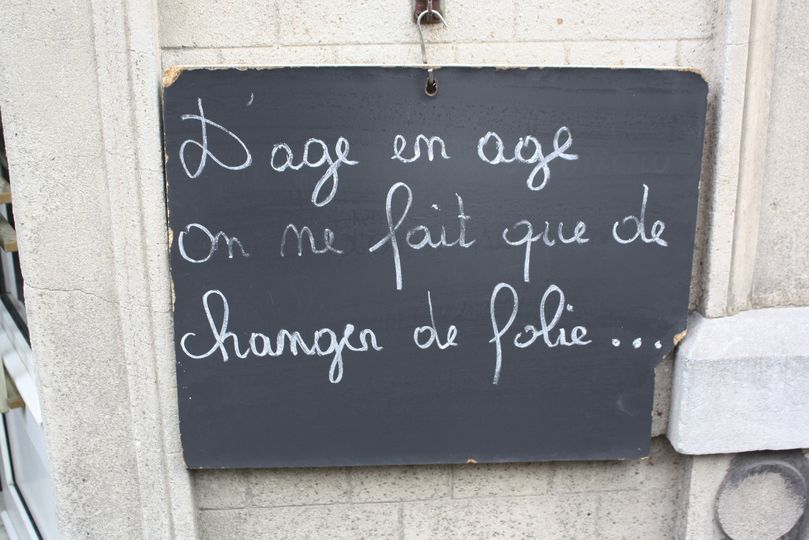 D'age en age
on ne fait que de
changer de folie ...